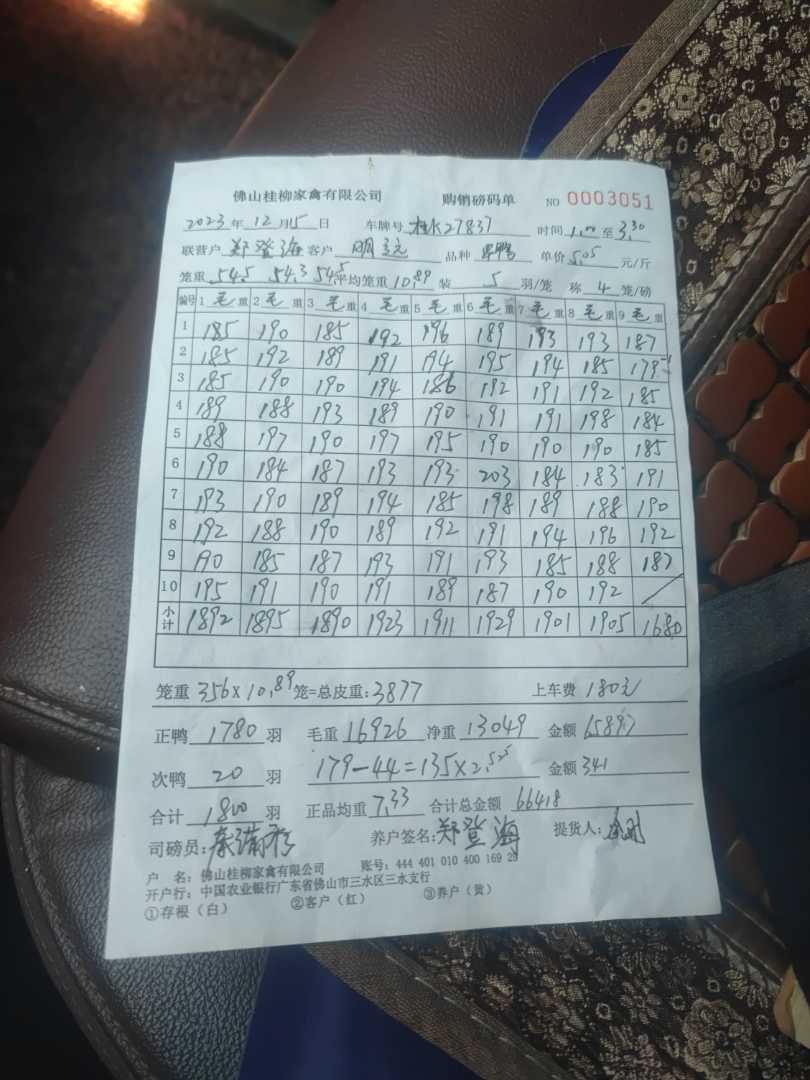 佛山桂柳家禽有限公司 购销磅码单 NO 0003051
2023年12月15日 车牌号 桂K27837 时间1.00至3.30
联营户 郑登海 客户 明 品种 鸭 单价5.05元/斤
笼重 54.5 54.3 54.5 平均笼重10.89 装 5 羽/笼 称 4 笼/磅
编号 1 毛 重 2 毛 重 3 毛 重 4 毛 重 5 毛 重 6 毛 重 7 毛 重 8 毛 重 9 毛 重
1 185 190 185 192 196 189 193 193 187
2 185 192 189 191 194 195 194 185 179-1
3 185 190 190 194 186 192 191 192 185
4 189 188 193 189 190 191 191 198 184
5 188 197 190 197 195 190 190 190 185
6 190 184 187 193 193 203 184 183 191
7 193 190 189 194 185 198 189 188 190
8 192 188 190 189 192 191 194 196 192
9 190 185 187 193 191 193 185 188 187
10 195 191 190 191 189 187 190 192
小计 1892 1895 1890 1923 1911 1929 1901 1905 1680
笼重 356×10.89笼=总皮重:3877 上车费 180元
正鸭 1780 羽 毛重16926 净重13049 金额65897
次鸭 20 羽 179-44=135×2.525 金额341
合计 1800 羽 正品均重7.33 合计总金额 66418
司磅员: 养户签名:郑登海 提货人:
户 名:佛山桂柳家禽有限公司 账号:444 401 010 400 169 28
开户行:中国农业银行广东省佛山市三水区三水支行
①存根(白) ②客户(红) ③养户(黄)